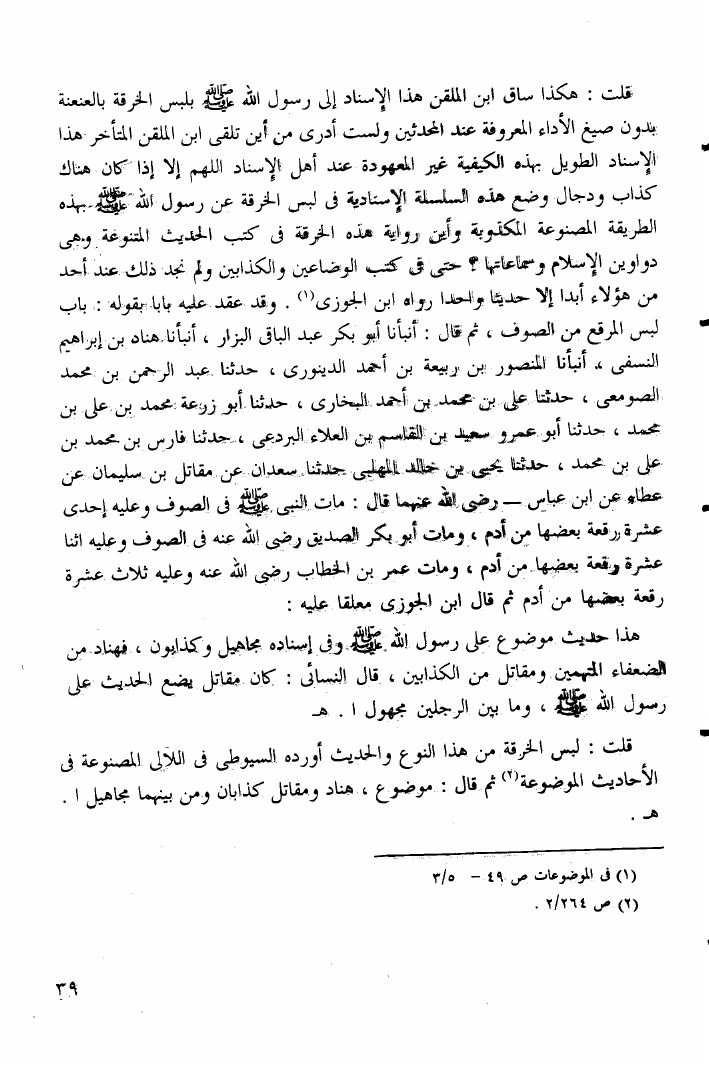 قلت : هكذا ساق ابن الملقن هذا الإسناد إلى رسول الله ﷺ بلبس الخرقة بالعنعنة
بدون صيغ الأداء المعروفة عند المحدثين ولست أدرى من أين تلقى ابن الملقن المتأخر هذا
الإسناد الطويل بهذه الكيفية غير المعهودة عند أهل الإسناد اللهم إلا إذا كان هناك
كذاب ودجال وضع هذه السلسلة الإسنادية فى لبس الخرقة عن رسول الله ﷺ بهذه
الطريقة المصنوعة المكذوبة وأين رواية هذه الخرقة فى كتب الحديث المتنوعة وهى
دواوين الإسلام وسماعاتها ؟ حتى فى كتب الوضاعين والكذابين ولم نجد ذلك عند أحد
من هؤلاء أبدا إلا حديثا واحدا رواه ابن الجوزى(١) . وقد عقد عليه بابا بقوله : باب
لبس المرقع من الصوف ، ثم قال : أنبأنا أبو بكر عبد الباقى البزار ، أنبأنا هناد بن إبراهيم
النسفى ، أنبأنا المنصور بن ربيعة بن أحمد الدينورى ، حدثنا عبد الرحمن بن محمد
الصومعى ، حدثنا على بن محمد بن أحمد البخارى ، حدثنا أبو زرعة محمد بن على بن
محمد ، حدثنا أبو عمرو سعيد بن القاسم بن العلاء البردعى ، حدثنا فارس بن محمد بن
على بن محمد ، حدثنا يحيى بن خالد المهلبى حدثنا سعدان عن مقاتل بن سليمان عن
عطاء عن ابن عباس – رضى الله عنهما قال : مات النبى ﷺ فى الصوف وعليه إحدى
عشرة رقعة بعضها من أدم ، ومات أبو بكر الصديق رضى الله عنه فى الصوف وعليه اثنا
عشرة رقعة بعضها من أدم ، ومات عمر بن الخطاب رضى الله عنه وعليه ثلاث عشرة
رقعة بعضها من أدم ثم قال ابن الجوزى معلقا عليه :
هذا حديث موضوع على رسول الله ﷺ وفى إسناده مجاهيل وكذابون ، فهناد من
الضعفاء المتهمين ومقاتل من الكذابين ، قال النسائى : كان مقاتل يضع الحديث على
رسول الله ﷺ ، وما بين الرجلين مجهول ا . هـ
قلت : لبس الخرقة من هذا النوع والحديث أورده السيوطى فى اللآلى المصنوعة فى
الأحاديث الموضوعة(٢) ثم قال : موضوع ، هناد ومقاتل كذابان ومن بينهما مجاهيل ا .
هـ .
(١) فى الموضوعات ص ٤٩ – ٣/٥
(٢) ص ٢/٢٦٤ .
٣٩